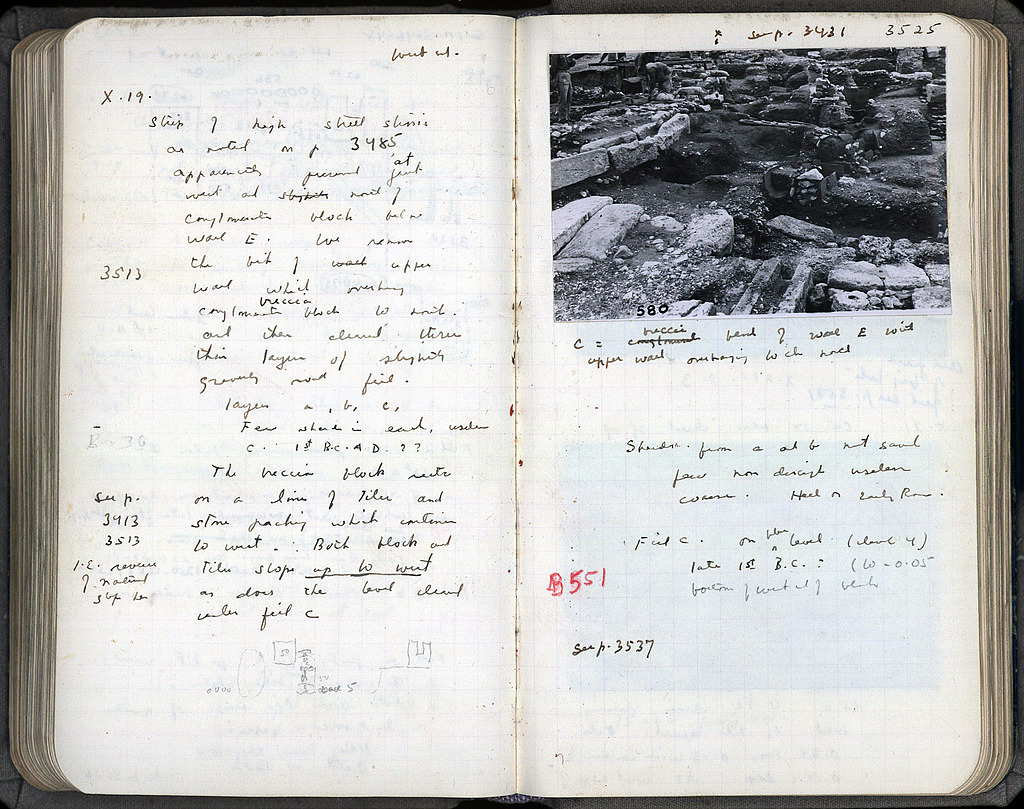 west ext.
X.19.
Strip of high street stosis
as noted on p 3485
apparently present at
west end slightly north of
conglomerate block below
wall E. We remove
3513 the bit of west upper
wall which overhang
conglomerate breccia block to north.
and then cleared three
thin layers of slightly
gravelly road fill.
layers a, b, c,
Few sherds in each, useless
B-36
c. 1st B.C. A.D. ??
The breccia block rests
see p. on a line of tiles and
3413 stone packing which continue
3513 to west. Both block and
I.E. reverse tiles slope up to west
of natural as does the level cleared
slope here under fill c
5
see p. 3431 3525
580
C = conglomerate breccia bend of wall E with
upper wall overhanging to the north
Sherds from a and b not saved
few non descript useless
coarse. Hel or Early Rom.
Fill c. on level (level 4)
late 1st B.C. : (to -0.05
bottom of west end of
B551
see p. 3537